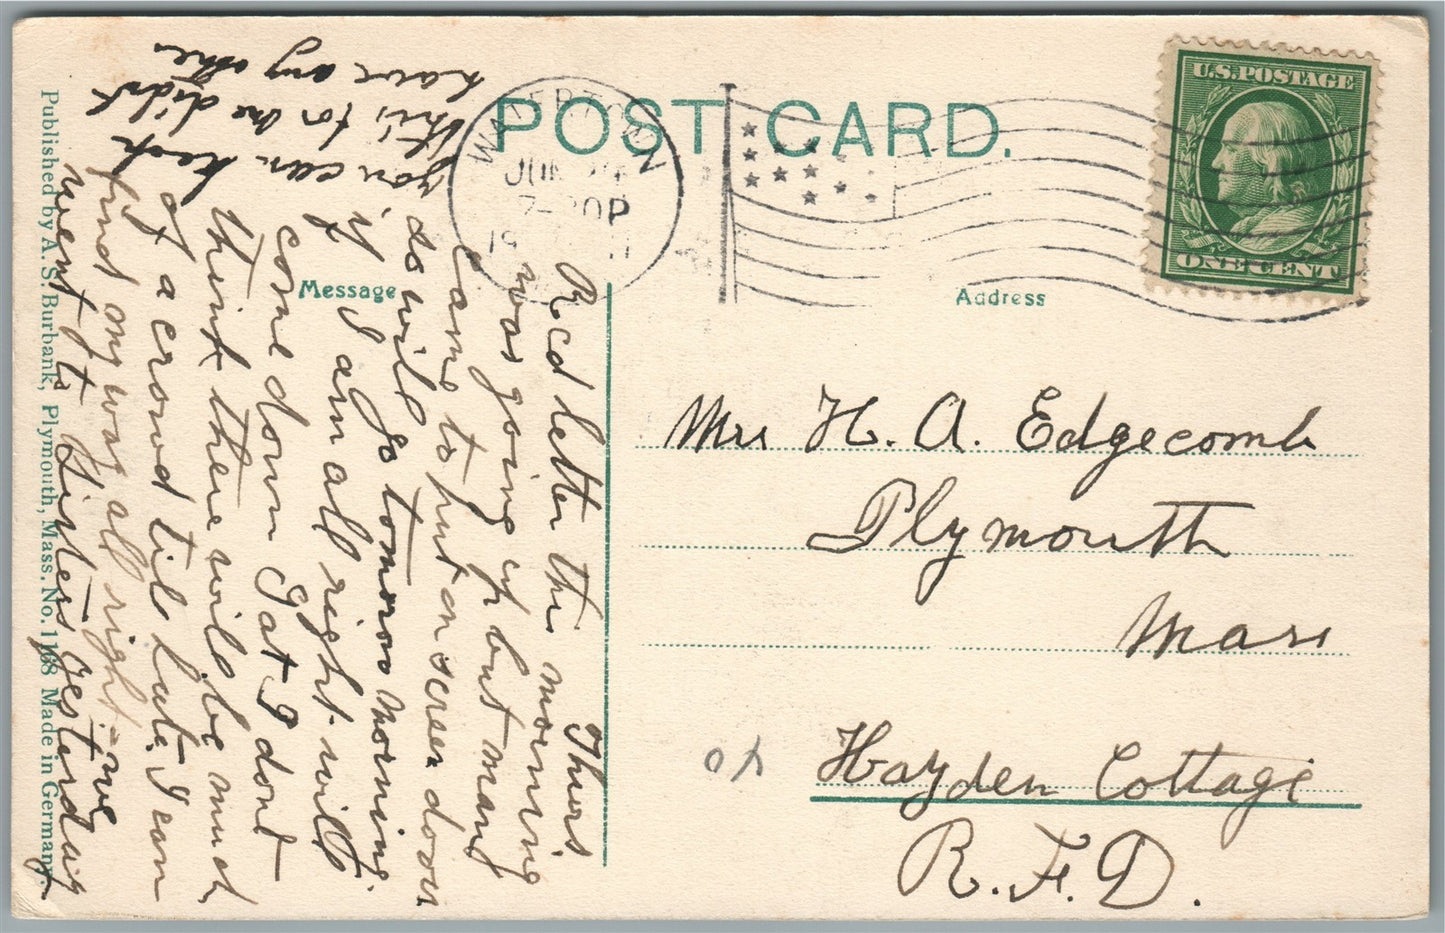 POST CARD.
WATERTOWN
JUN 24
7-30P
U.S. POSTAGE
ONE CENT
Message
Address
Mrs H. A. Edgecomb
Plymouth
Mass
Hayden Cottage
R.F.D.
Thurs
Rcd letter this morning
was going up but mang
came to put on screen doors
so will go tomorow morning.
if I am all right. will
come down Sat I dont
think there will be much
of a crowd til late, I can
find my way all right - we
went to Sisters yesterday
you can keep
this, for one didnt
have any other
Published by A. S. Burbank, Plymouth, Mass. No. 1168 Made in Germany.